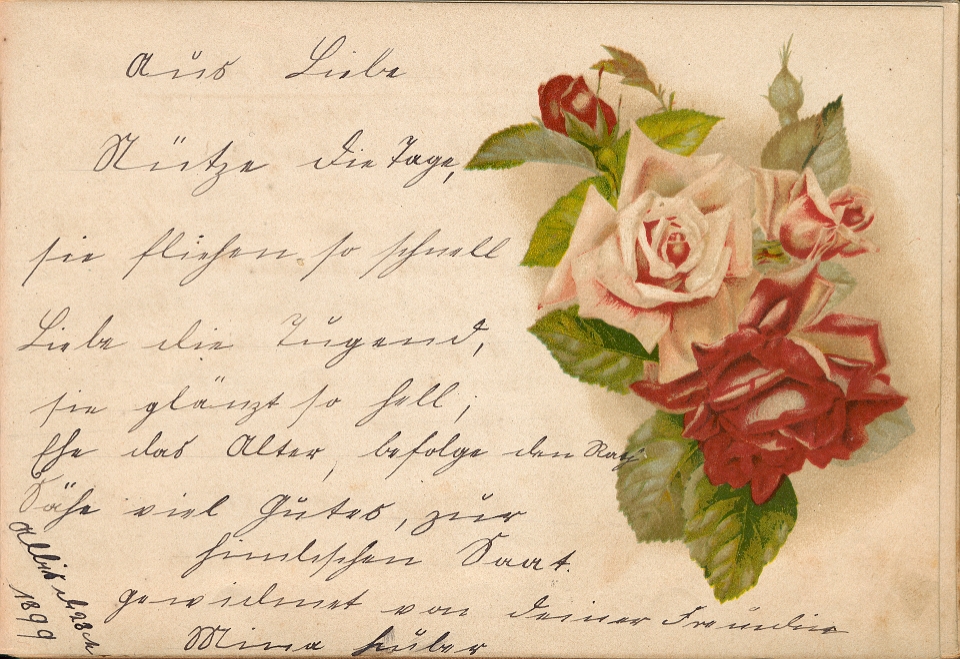 Aus Liebe
Nütze die Tage,
sie fliehen so schnell
Liebe die Tugend,
sie glänzt so hell;
Ehe das Alter, befolge den Rath
Sähe viel Gutes, zur
himlischen Saat.
gewidmet von deiner Freundin
Mina Huber
1899